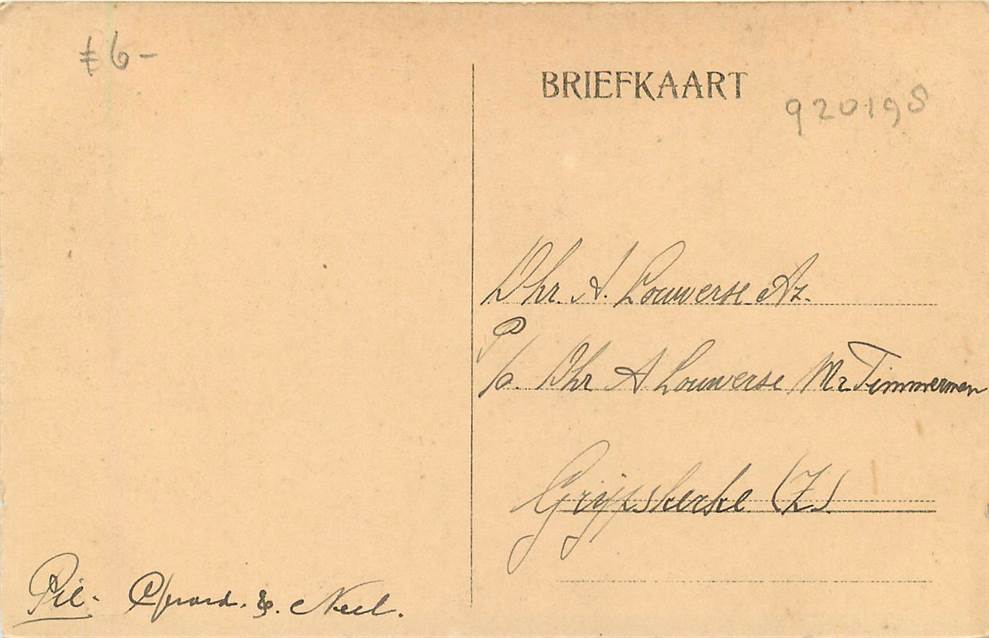 6-
BRIEFKAART
920198
Dhr. A. Louwerse Az.
P/a. Dhr A Louwerse Mr Timmerman
Grijpskerke (Z).
& Neel.